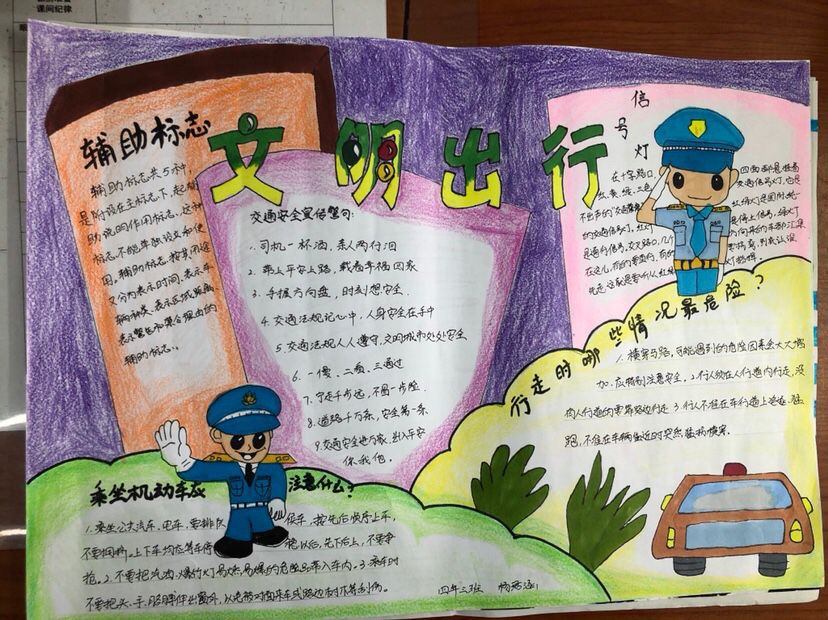 课间纪律
文明出行
辅助标志
辅助标志共5种,
是附设在主标志下,起辅
助说明作用标志。这种
标志不能单独设立和使
用。辅助标志按其用途
又分为表示时间、表示车
辆种类、表示区域或距离
表示警告和禁令理由的
辅助标志。
交通安全宣传警句:
1.司机一杯酒,亲人两行泪
2.带上平安上路,载着幸福回家
3.手握方向盘,时刻想安全.
4.交通法规记心中,人身安全在手中
5.交通法规人人遵守,文明城市处处安全
6.一慢、二看、三通过
7.宁走千步远,不冒一步险.
8.道路千万条,安全第一条
9.交通安全进万家,出入平安
你我他。
信号灯
在十字路口,
四面都悬挂着
红、黄、绿、三色
交通信号灯,也是
不出声的“交通警察”
红绿灯是国际统一
的交通信号灯,红灯
是停止信号,绿灯
是通行信号,交叉路口,几个
方向来的车都汇集
在这儿,
先走
行走时哪些情况最危险?
1.横穿马路,可能遇到的危险因素会大大增
加,应特别注意安全。2.行人须在人行道内行走,没
有人行道的要靠路边行走 3.行人不准在车行道上追逐、猛
跑,不准在车辆临近时突然猛拐横穿.
乘坐机动车应注意什么?
1.乘坐公共汽车、电车、要排队候车,按先后顺序上车,
不要拥挤。上下车均应等车停稳以后,先下后上,不要争
抢。2.不要把汽油、爆竹灯易燃、易爆的危险品带入车内。3.乘车时
不要把头、手、胳膊伸出窗外,以免被对面来车或路边树木等刮伤。
四年三班